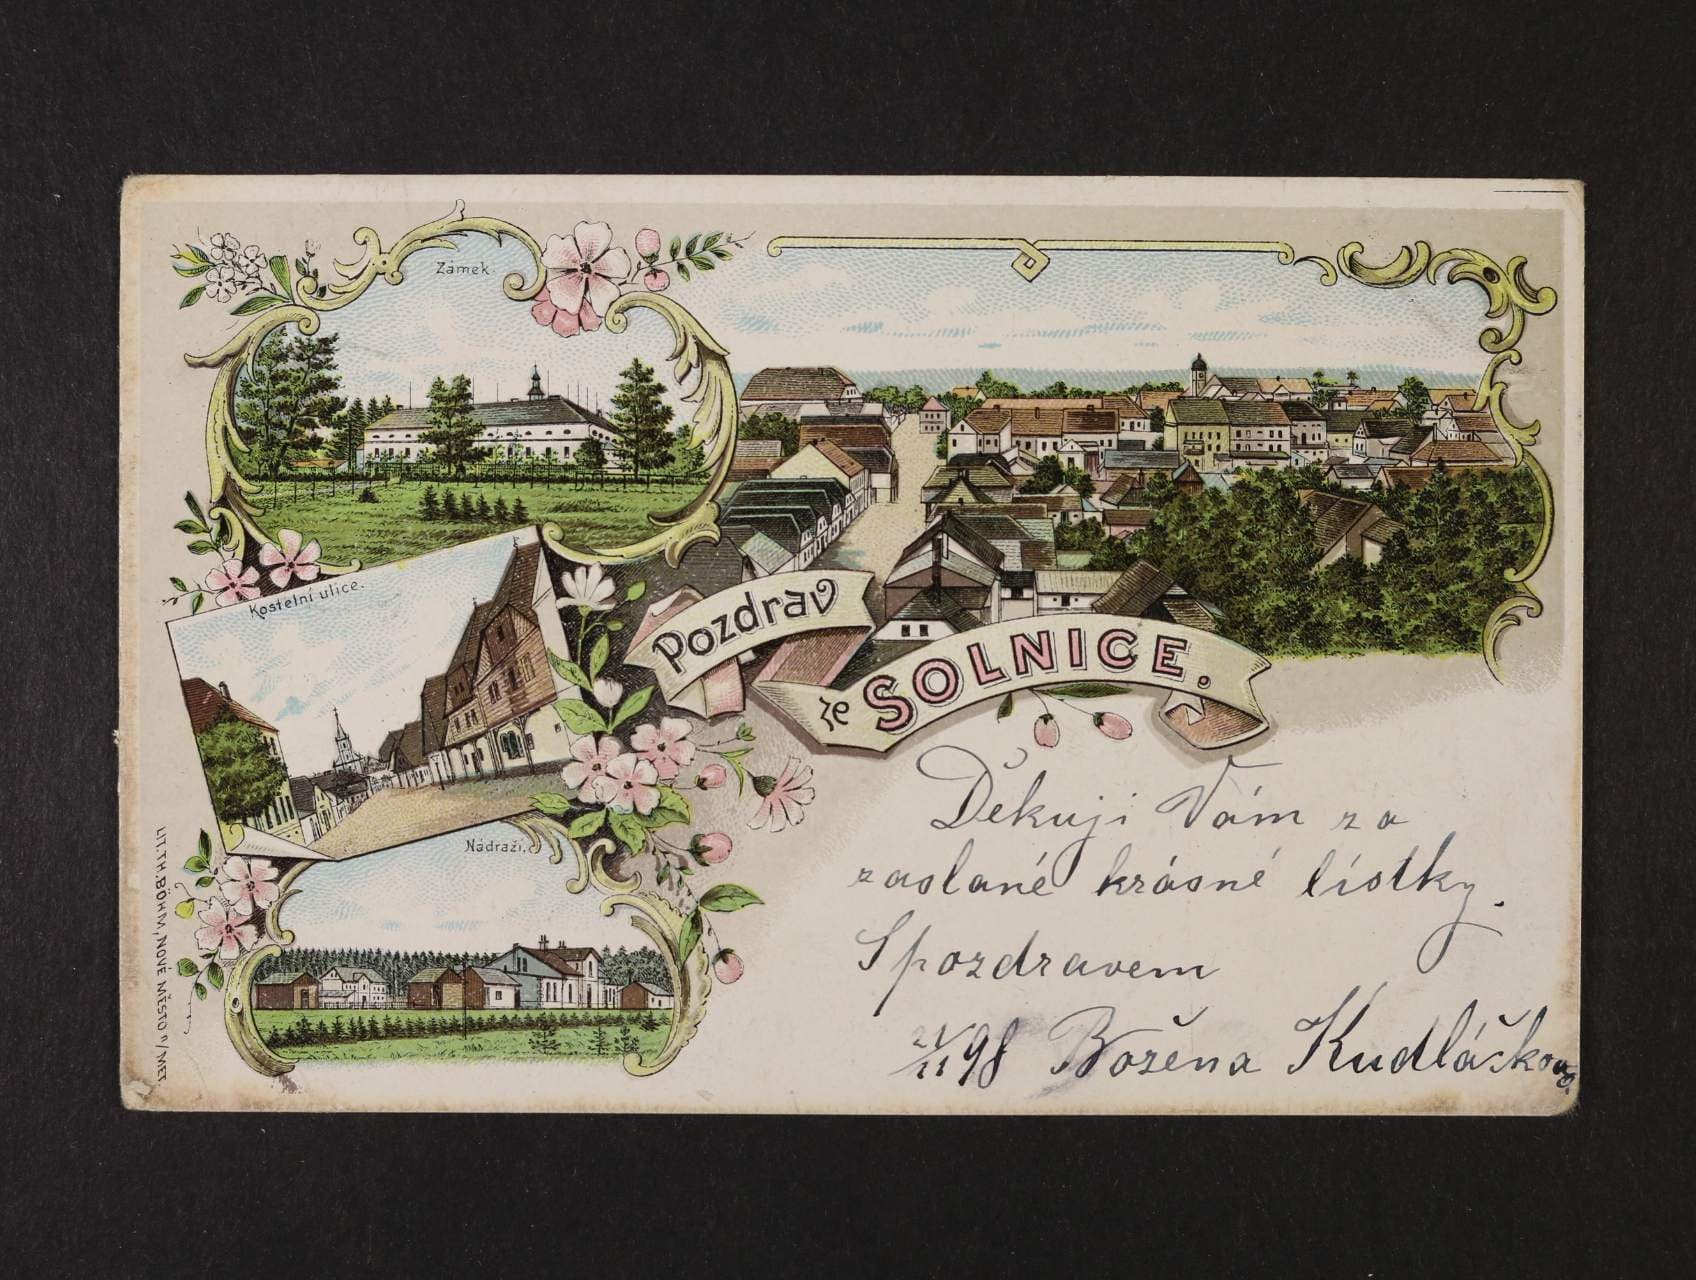 Zámek.
Kostelní ulice.
Nádraží.
Pozdrav
ze SOLNICE.
LIT. TH. BÖHM, NOVÉ MĚSTO n/MET.
Děkuji Vám za
zaslané krásné lístky.
S pozdravem
98 Božena Kudláčková